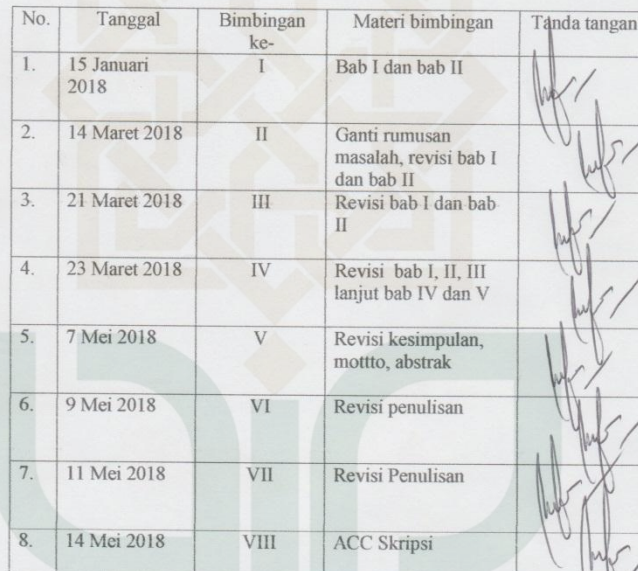 No. Tanggal Bimbingan ke- Materi bimbingan Tanda tangan
1. 15 Januari 2018 I Bab I dan bab II
2. 14 Maret 2018 II Ganti rumusan masalah, revisi bab I dan bab II
3. 21 Maret 2018 III Revisi bab I dan bab II
4. 23 Maret 2018 IV Revisi bab I, II, III lanjut bab IV dan V
5. 7 Mei 2018 V Revisi kesimpulan, mottto, abstrak
6. 9 Mei 2018 VI Revisi penulisan
7. 11 Mei 2018 VII Revisi Penulisan
8. 14 Mei 2018 VIII ACC Skripsi